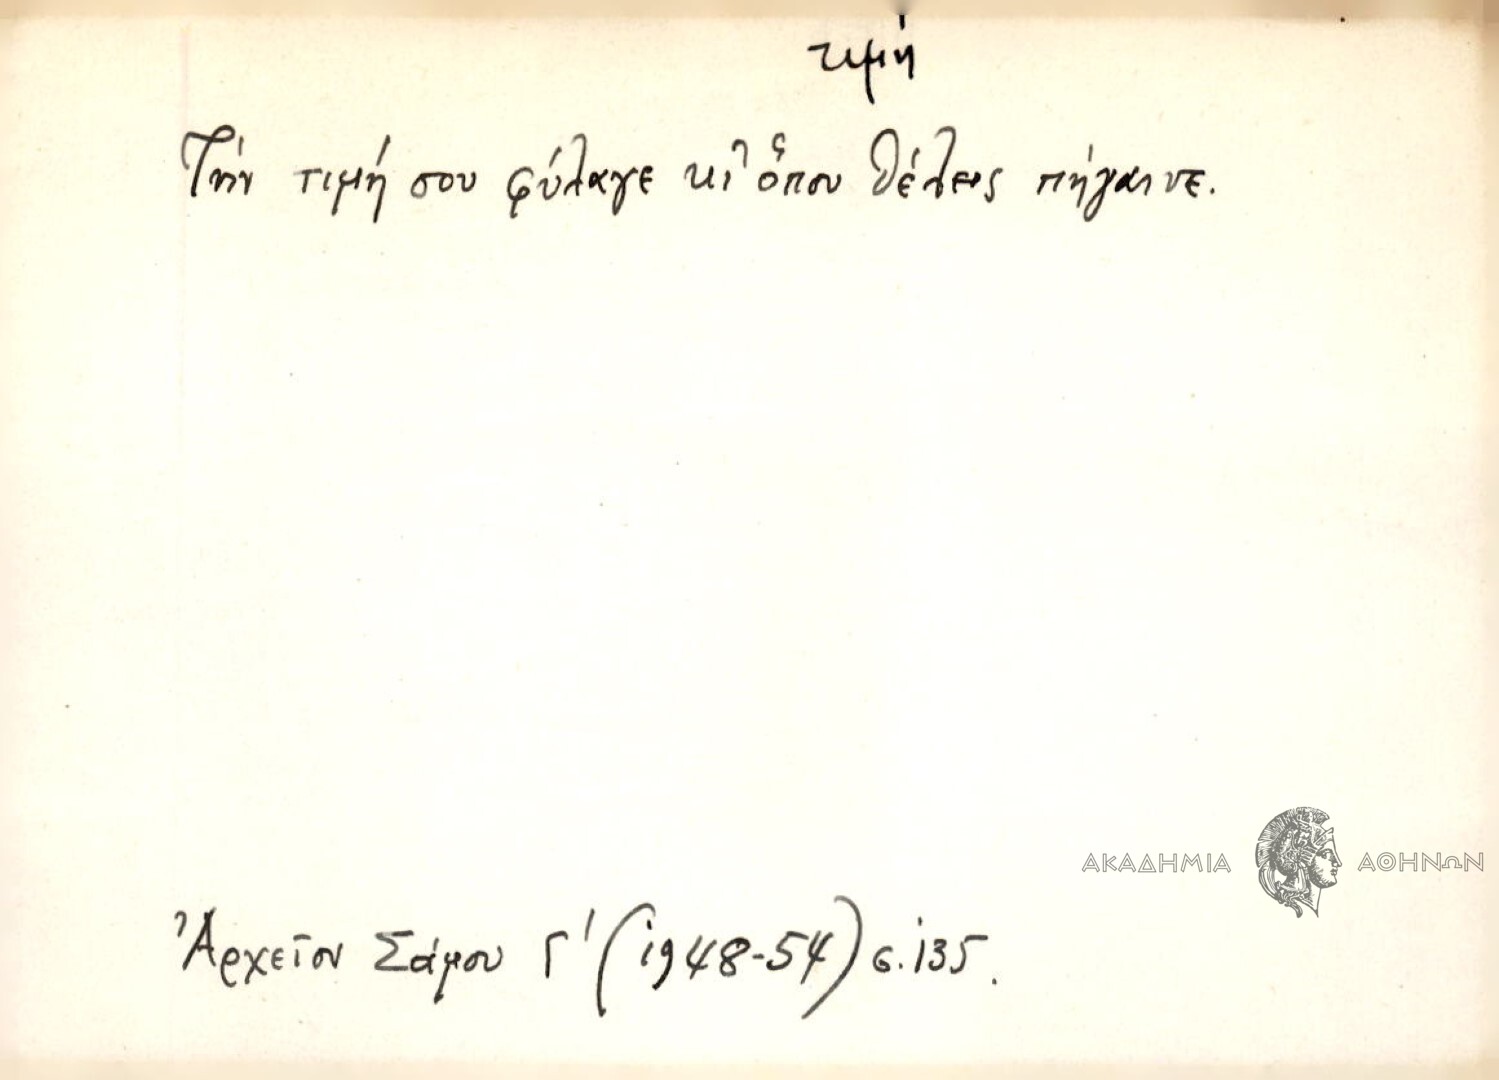 τιμή
Τήν τιμή σου φύλαγε κι' ὅπου θέλεις πήγαινε.
ΑΚΑΔΗΜΙΑ ΑΘΗΝΩΝ
Ἀρχεῖον Σάμου Γ' (1948-54) σ. 135.